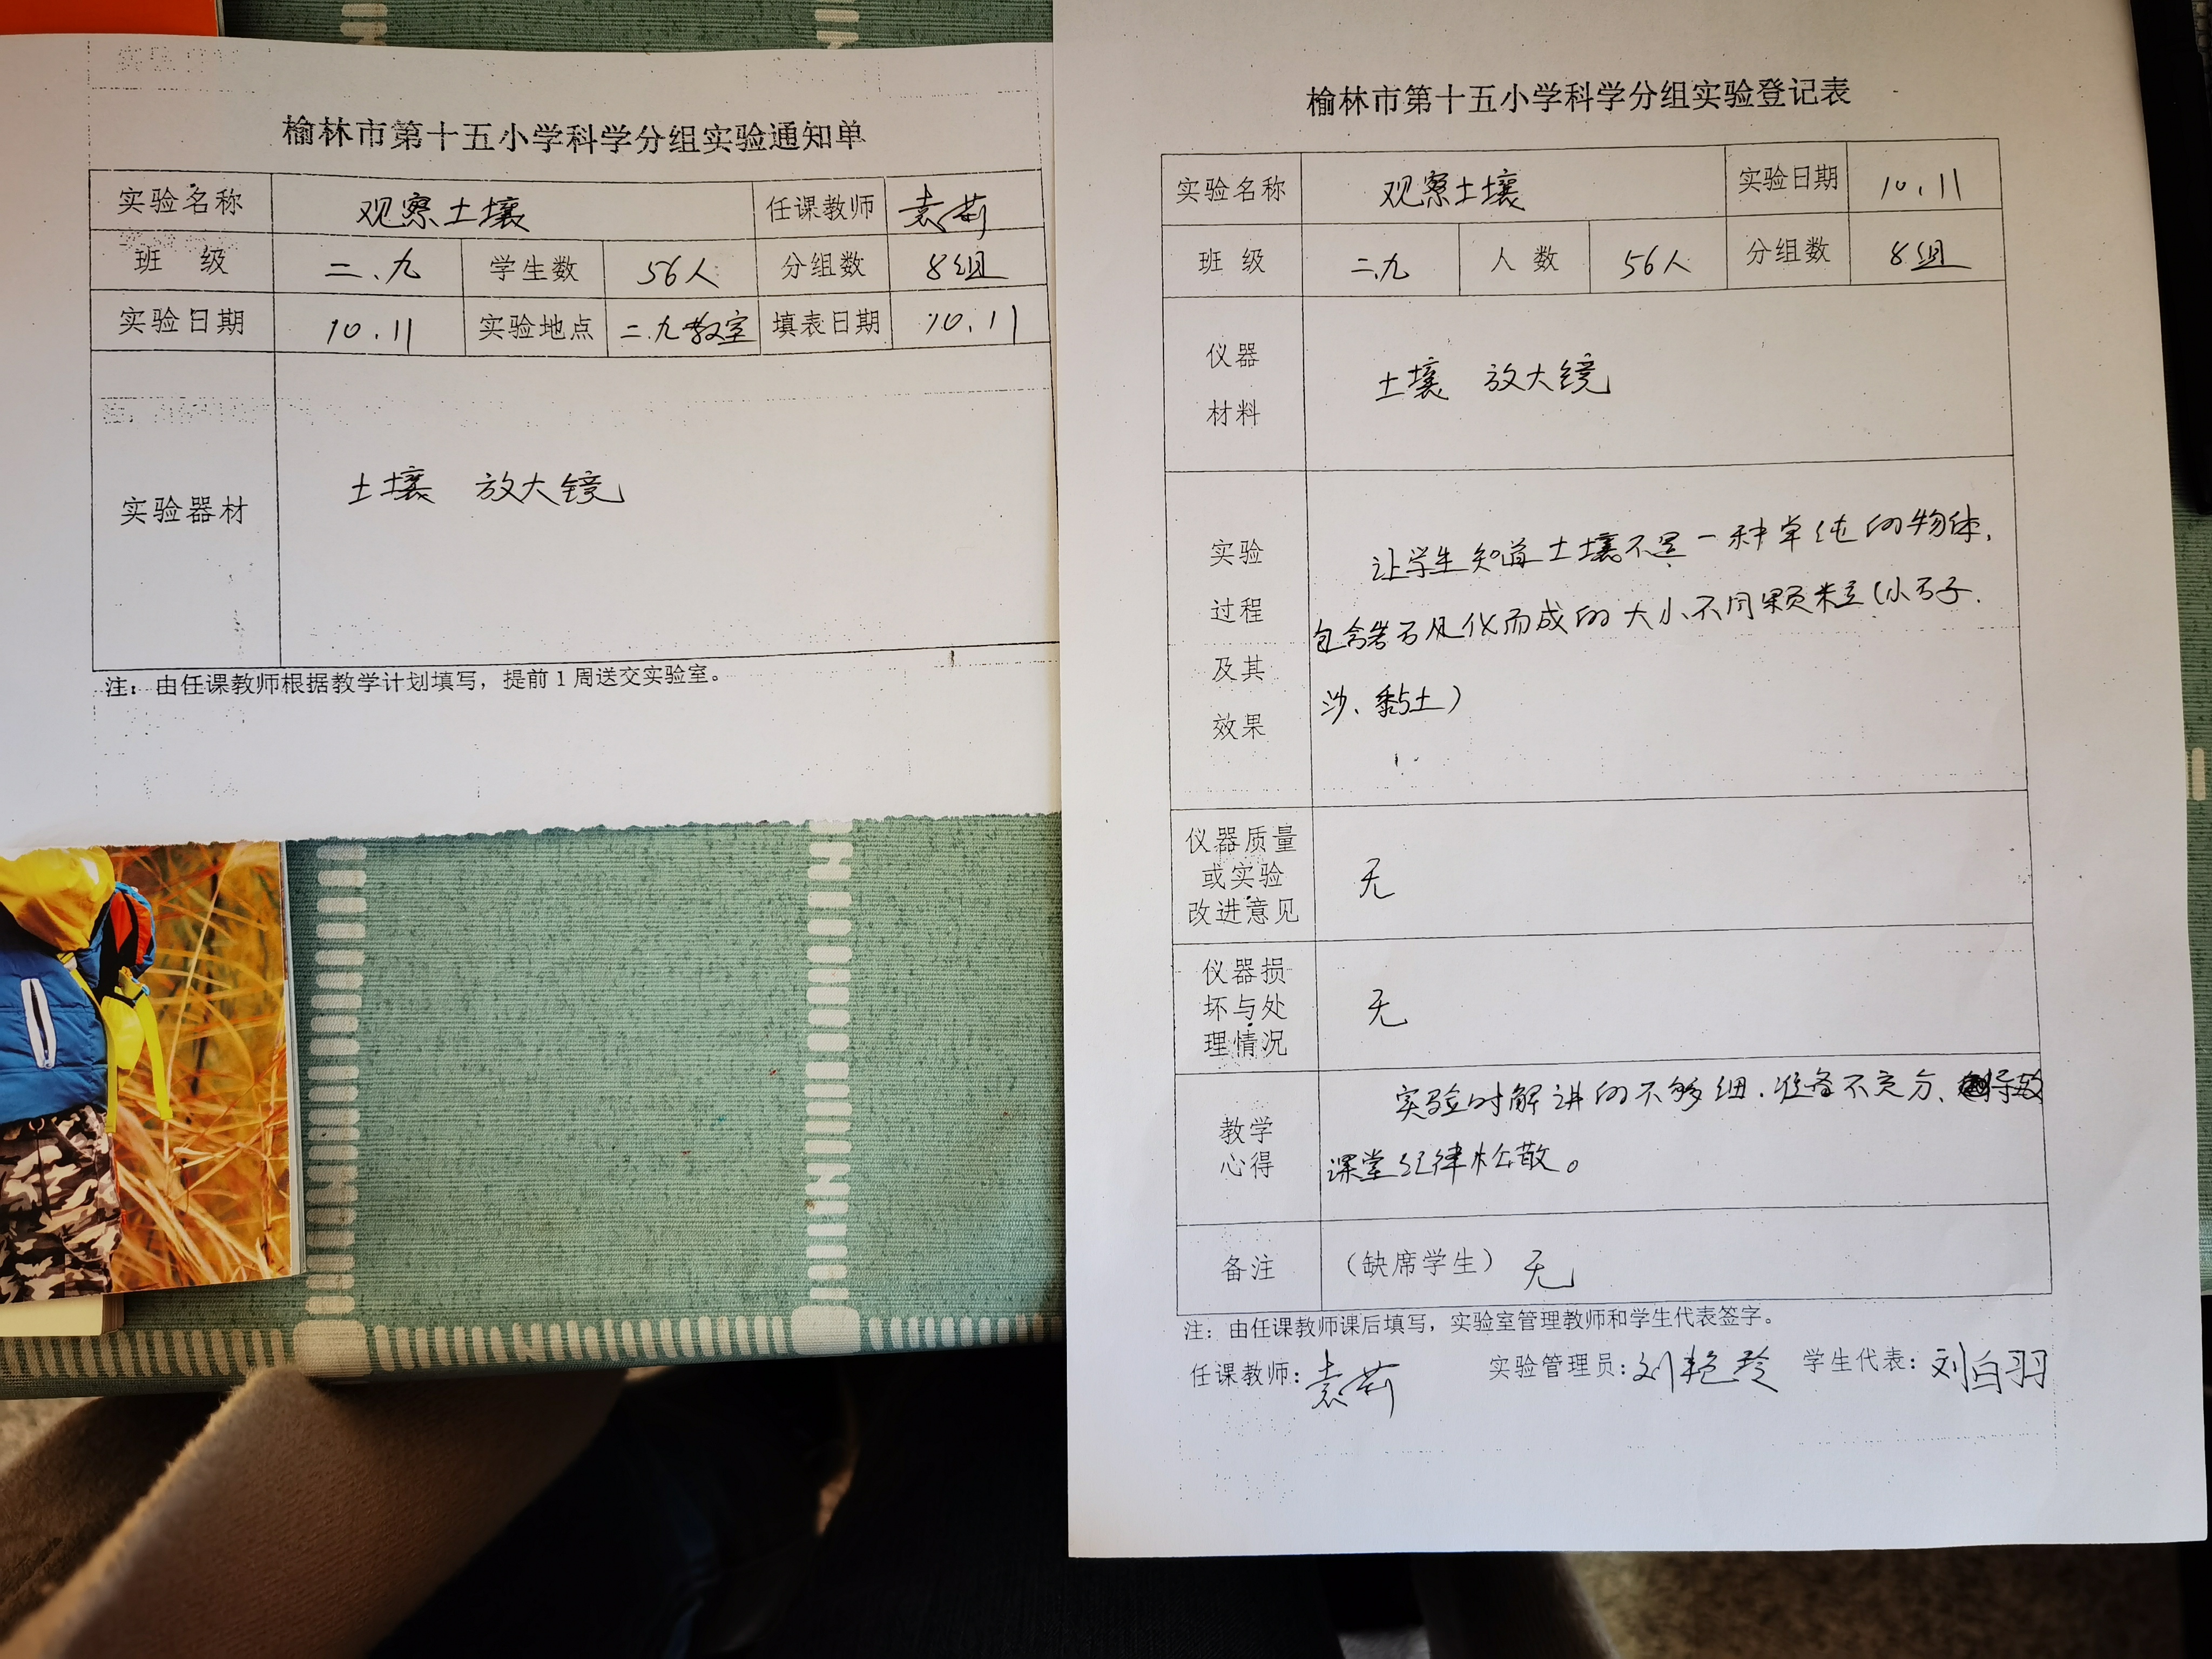 榆林市第十五小学科学分组实验通知单
实验名称 观察土壤 任课教师 袁莉
班 级 二.九 学生数 56人 分组数 8组
实验日期 10.11 实验地点 二.九教室 填表日期 10.11
实验器材 土壤 放大镜
注:由任课教师根据教学计划填写,提前1周送交实验室。
榆林市第十五小学科学分组实验登记表
实验名称 观察土壤 实验日期 10.11
班 级 二.九 人 数 56人 分组数 8组
仪器
材料
土壤 放大镜
实验
过程
及其
效果
让学生知道土壤不是一种单纯的物体,
包含岩石风化而成的大小不同颗粒(小石子.
沙、黏土)
仪器质量
或实验
改进意见
无
仪器损
坏与处
理情况
无
教学
心得
实验时解讲的不够细.准备不充分、导致
课堂纪律松散。
备注 (缺席学生) 无
注:由任课教师课后填写,实验室管理教师和学生代表签字。
任课教师:袁莉 实验管理员:刘艳玲 学生代表:刘白羽